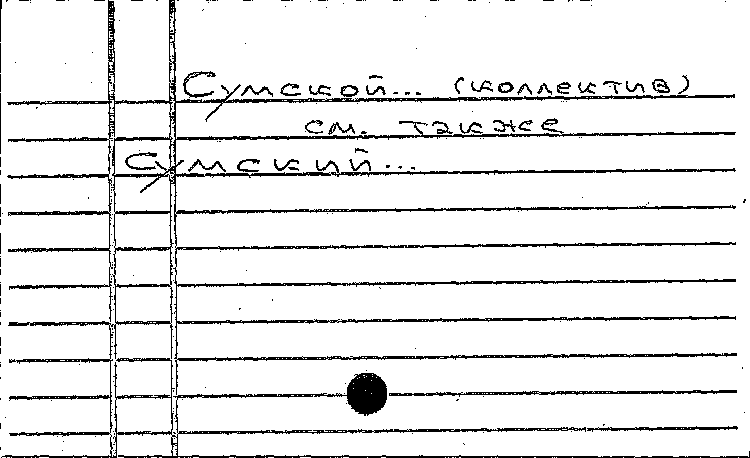 Сумской... (коллектив)
см. также
Сумский...